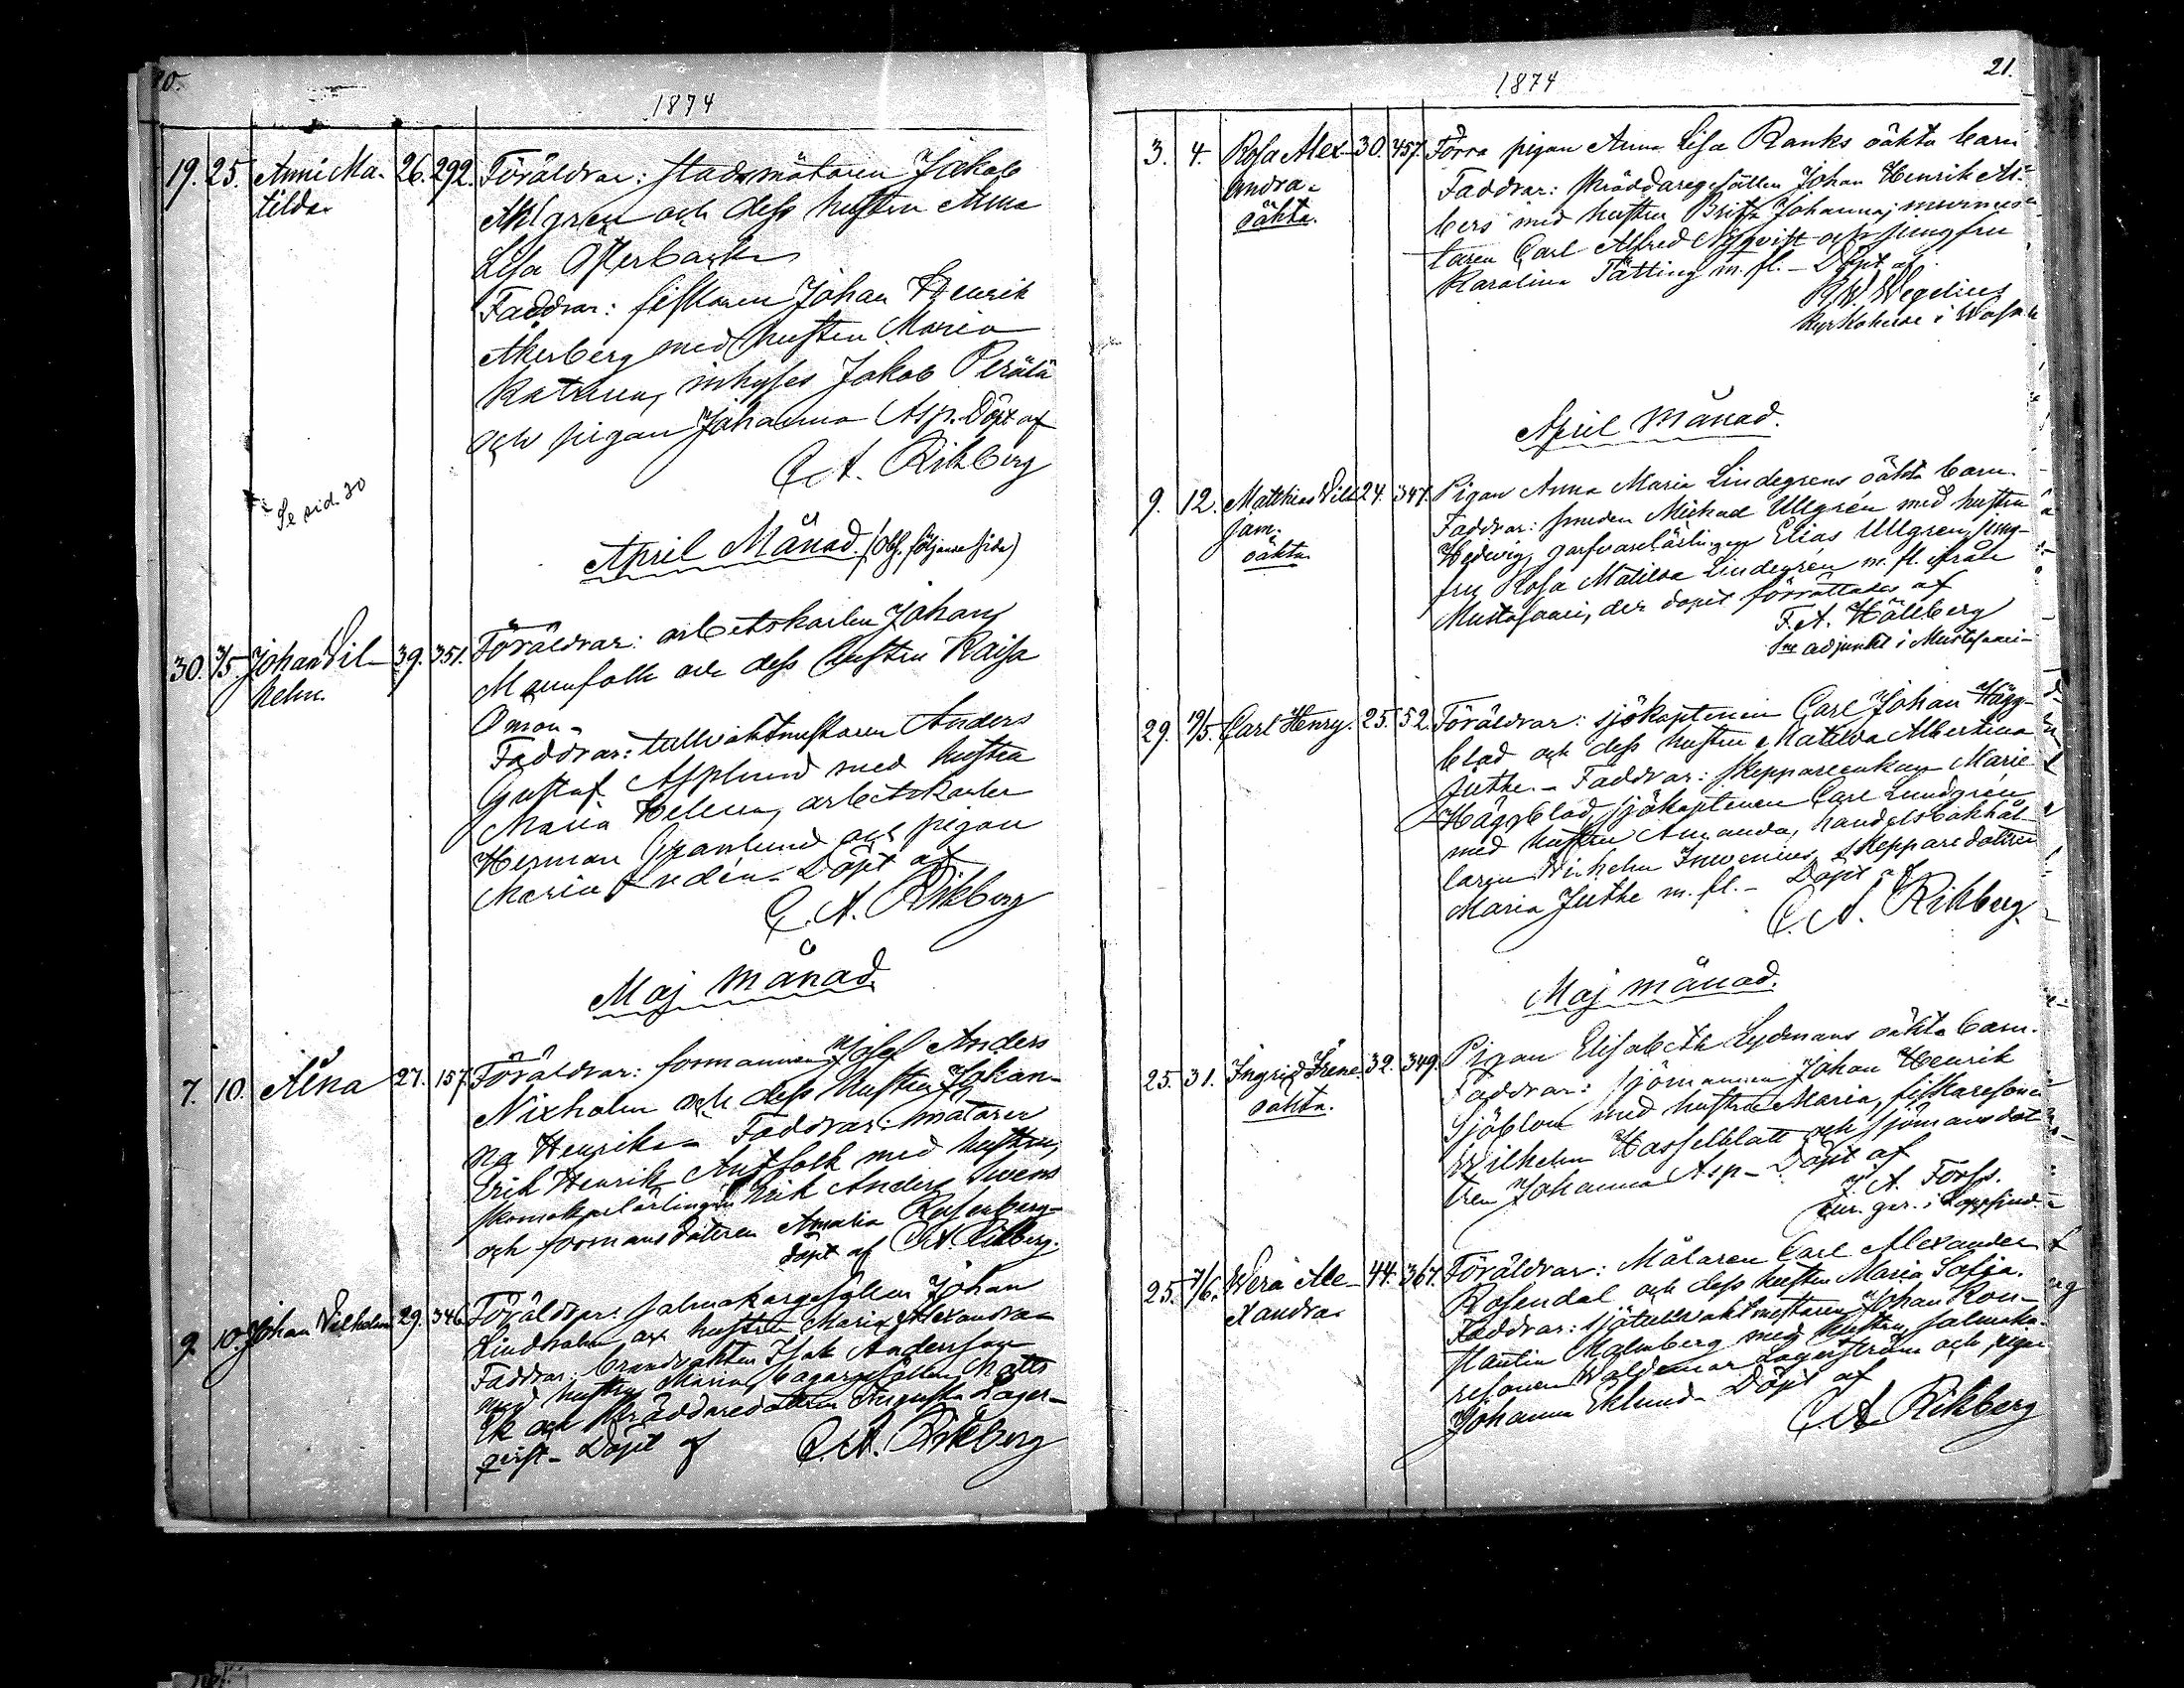 1874
19. 25. Anni Ma- 26. 292. Föräldrar: stadsmätaren Jakob
tilda. Ahlgren och dess hustru Anna
Lisa Österback
Faddrar: fiskaren Johan Henrik
Åkerberg med hustru Maria
Katrina, inhyses Jakob Perälä
och pigan Johanna Asp. Döpt af
C. A. Rikberg
Se sid. 20
April Månad. (Obs. följande sida)
30. 3/5. Johan Vil- 39. 351. Föräldrar: arbetskarlen Johan
helm. Mannfolk och dess hustru Kaisa
Öman.
Faddrar: tullvaktmästaren Anders
Gustaf Asplund med hustru
Maria Helena, arbetskarlen
Herman Granlund och pigan
Maria Lindén. Döpt af
C. A. Rikberg
Maj månad.
7. 10. Alna 27. 157. Föräldrar: formannen Josef Anders
Nixholm och dess hustru Johan-
na Henrika. Faddrar: mätaren
Erik Henrik Antfolk med hustru,
skomakarlärlingen Erik Anders Svens
och formansdotteren Amalia Rosenberg-
döpt af C. A. Rikberg.
9. 10. Johan Vilhelm 29. 346. Föräldrar: salmakargesällen Johan
Lindholm och hustru Maria Alexandra
Faddrar: brandvakten Isak Andersson
med hustru Maria, bagargesällen Matts
Ek och skräddaredottren Augusta Lager-
qvist. Döpt af C. A. Rikberg
21.
1874
3. 4. Rosa Alex- 30. 457. Förra pigan Anna Lisa Ranks oäkta barn
andra. Faddrar: skräddaregesällen Johan Henrik Al-
oäkta. bers med hustru Brita Johanna, murmäs-
taren Carl Alfred Nyqvist och jungfru
Karolina Tätting m. fl. – Döpt af
K. W. Wegelius
kyrkoherde i Wasa
April månad.
9. 12. Matthias Vil- 24. 347. Pigan Anna Maria Lindegrens oäkta barn.
jam. Faddrar: smeden Michael Ullgrén med hustru
oäkta. Hedwig, garfvarelärlingen Elias Ullgren, jung-
fru Rosa Matilda Lindegrén m. fl. ifrån
Mustasaari, der dopet förrättades af
F. A. Hällberg
Sne adjunkt i Mustasaari
29. 19/5. Carl Henry. 25. 52. Föräldrar: sjökaptenen Carl Johan Hägg-
blad och dess hustru Matilda Albertina
Juthe. – Faddrar: skeppareenkan Marie
Häggblad, sjökaptenen Carl Lundgrén
med hustru Amanda, handelsbokhål-
laren Wilhelm Inwenius, skepparedottren
Maria Juthe m. fl. – Döpt af
C. A. Rikberg.
Maj månad.
25. 31. Ingrid Irene. 32. 349. Pigan Elisabeth Lydmans oäkta barn.
oäkta. Faddrar: sjömannen Johan Henrik
Sjöblom med hustru Maria, fiskaresonen
Wilhelm Hasselblatt och sjömansdot-
tren Johanna Asp – Döpt af
J. A. Forss.
i Lappfjerd.
25. 7/6. Wera Ale- 44. 367. Föräldrar: Målaren Carl Alexander
xandra. Rosendal och dess hustru Maria Sofia.
Faddrar: sjötullvaktmästaren Johan Kon-
stantin Malmberg med hustru, salmaka-
resonen Woldemar Lagerström och pigan
Johanna Eklund. Döpt af
C. A. Rikberg